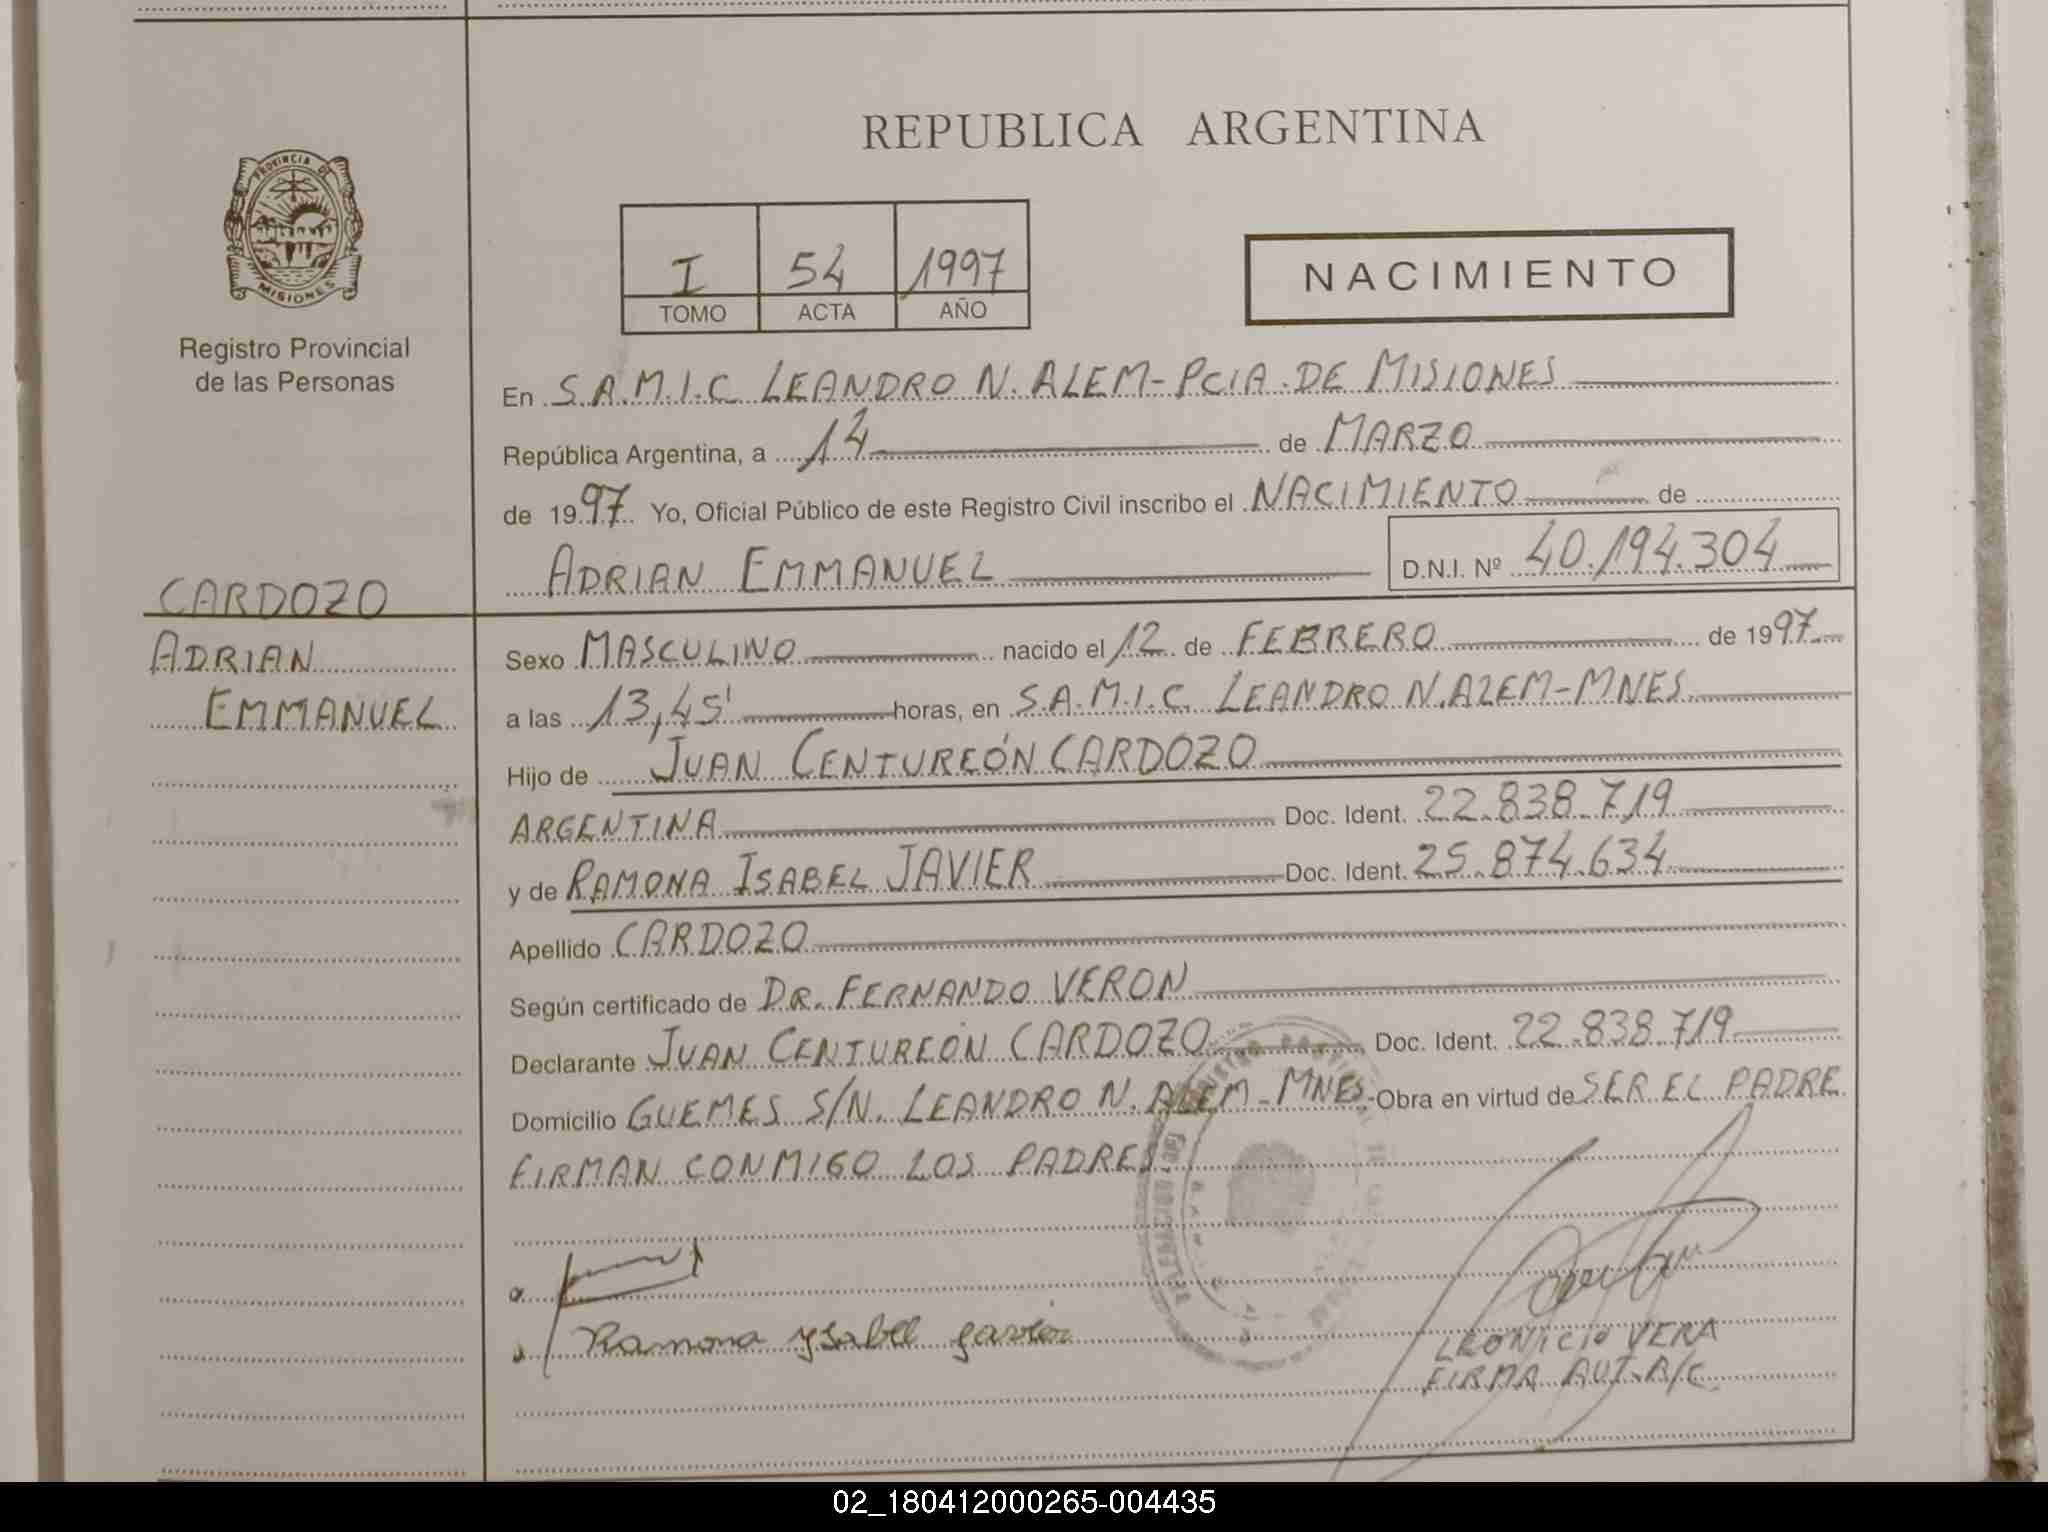 REPUBLICA ARGENTINA
PROVINCIA DE
MISIONES
Registro Provincial
de las Personas
I 54 1997
TOMO ACTA AÑO
NACIMIENTO
En S.A.M.I.C LEANDRO N. ALEM-PCIA. DE MISIONES
República Argentina, a 14 de MARZO
de 1997 Yo, Oficial Público de este Registro Civil inscribo el NACIMIENTO de
ADRIAN EMMANUEL D.N.I. Nº 40.194.304
CARDOZO
ADRIAN
EMMANUEL
Sexo MASCULINO nacido el 12 de FEBRERO de 1997
a las 13,45' horas, en S.A.M.I.C. LEANDRO N. ALEM-MNES
Hijo de JUAN CENTUREÓN CARDOZO
ARGENTINA Doc. Ident. 22.838.719
y de RAMONA ISABEL JAVIER Doc. Ident. 25.874.634
Apellido CARDOZO
Según certificado de DR. FERNANDO VERON
Declarante JUAN CENTUREÓN CARDOZO Doc. Ident. 22.838.719
Domicilio GUEMES S/N. LEANDRO N. ALEM-MNES- Obra en virtud de SER EL PADRE
FIRMAN CONMIGO LOS PADRES.
Ramona ysabel Javier
LEONICIO VERA
FIRMA AUT. A/C
02_180412000265-004435